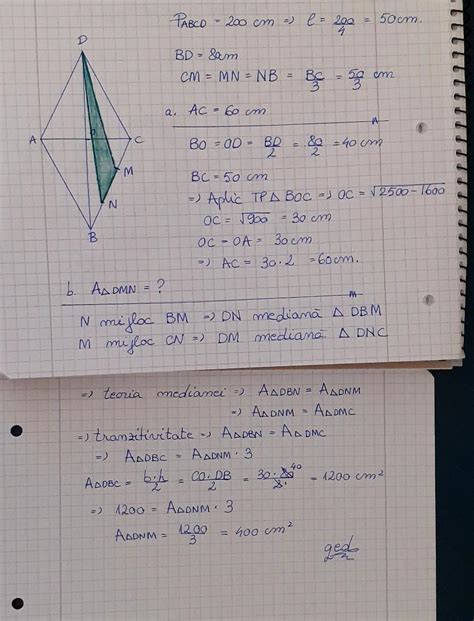 PABCD = 200 cm => l = 200/4 = 50cm.
BD = 80cm
CM = MN = NB = BC/3 = 50/3 cm
a. AC = 60 cm
BO = OD = BD/2 = 80/2 = 40 cm
BC = 50 cm
=> Aplic TP△BOC => OC = √2500-1600
OC = √900 = 30 cm
OC = OA = 30cm
=> AC = 30·2 = 60cm.
D
A
O
C
M
N
B
b. A△DMN = ?
N mijloc BM => DN mediană △ DBM
M mijloc CN => DM mediană △ DNC
=> teoria medianei => A△DBN = A△DNM
=> A△DNM = A△DMC
=> tranzitivitate => A△DBN = A△DMC
=> A△DBC = A△DNM · 3
A△DBC = b·h/2 = CO·DB/2 = 30·80 40/2 = 1200 cm²
=> 1200 = A△DNM · 3
A△DNM = 1200/3 = 400 cm²
qed